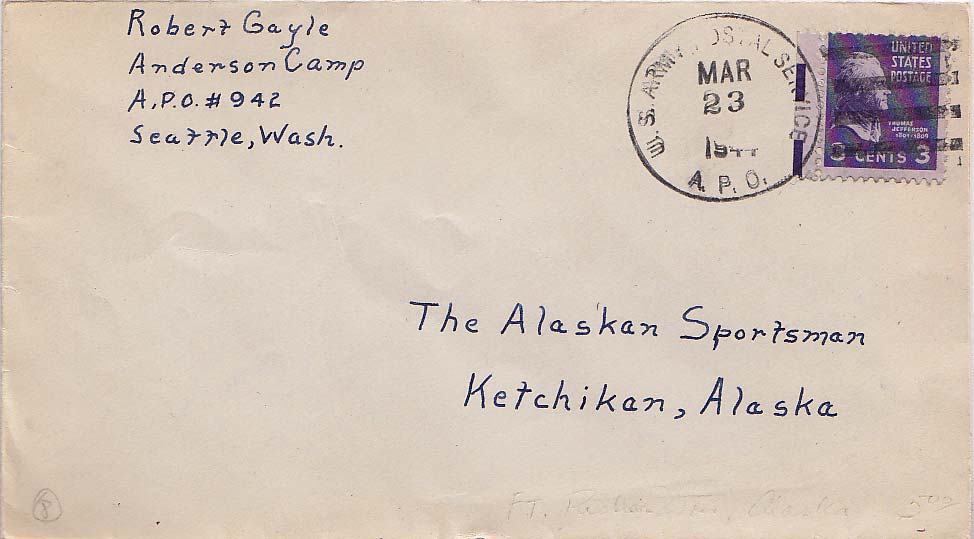 Robert Gayle
Anderson Camp
A.P.O. # 942
Seattle, Wash.
U. S. ARMY POSTAL SERVICE
MAR
23
1944
A. P. O.
UNITED
STATES
POSTAGE
THOMAS
JEFFERSON
1801-1809
3 CENTS 3
The Alaskan Sportsman
Ketchikan, Alaska
8
Ft. Richardson, Alaska 500